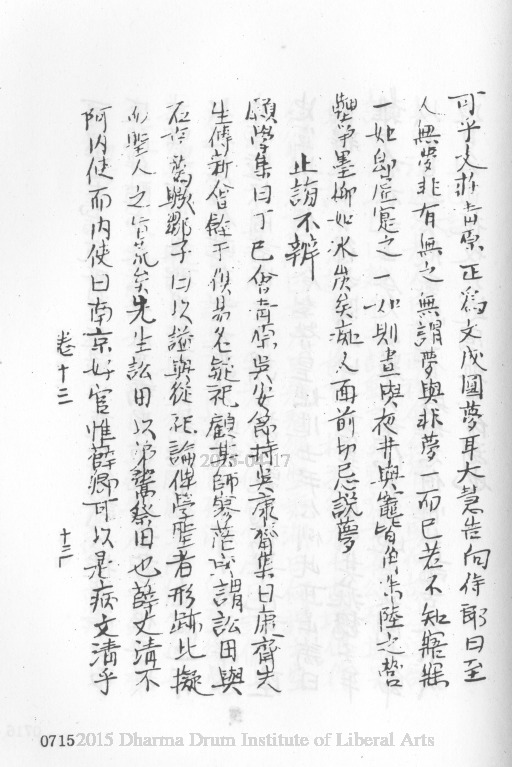 可乎文莊青原正為文成圓夢耳大慧告向侍郎曰至
人無夢非有無之無謂夢與非夢一而已若不知寤寐
一如即虛寔之一如則晝與夜井與竈皆角朱陸之
儒爭墨柳如冰炭矣癡人面前切忌說夢
止謗不辨
願學集曰丁巳會青原吳安節持吳康齋集曰康齋先
生傳新會從于俱易名從祀顧其師寥茫或謂訟田與
石亨薦鄒子曰以諡與從祀論俾學聖者形跡比擬
而聖人之旨荒矣先生訟田以弟鬻祭田也薛文清不
阿內使而內使曰南京好官惟薛卿可以是病文清乎
卷十三
十三
0715
2015 Dharma Drum Institute of Liberal Arts